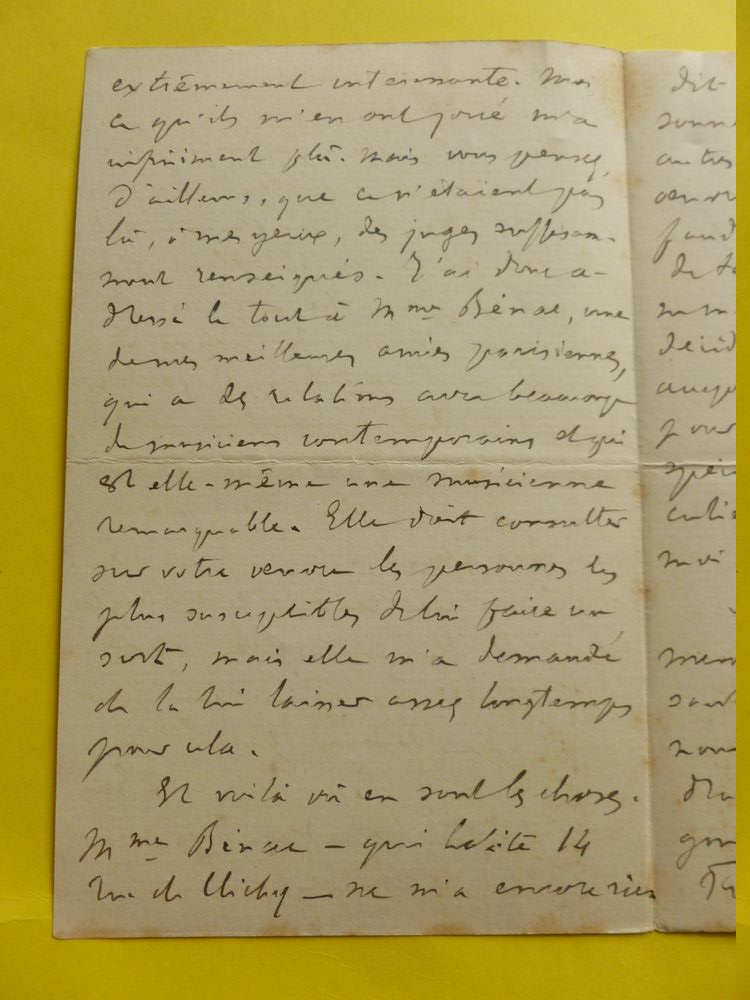 extrêmement intéressante. Moi
ce qu'ils m'en ont joué m'a
infiniment plu. Mais vous pensez,
d'ailleurs, que ce n'étaient pas
là, à mes yeux, des juges suffisam-
ment renseignés. J'ai donc a-
dressé le tout à Mme Bénac, une
de mes meilleures amies parisiennes,
qui a des relations avec beaucoup
de musiciens contemporains et qui
est elle-même une musicienne
remarquable. Elle doit consulter
sur votre oeuvre les personnes les
plus susceptibles de lui faire un
sort, mais elle m'a demandé
de la lui laisser assez longtemps
pour cela.
Et voilà où en sont les choses.
Mme Bénac — qui habite 14
rue de Clichy — ne m'a encore rien
dit